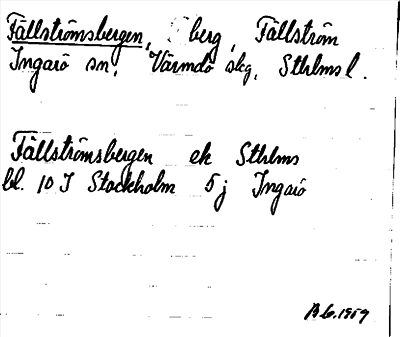 Fällströmsbergen, berg, Fällström
Ingarö sn, Värmdö skg, Sthlms l.
Fällströmsbergen ek Sthlms
bl. 10 I Stockholm 5 j Ingarö
1959